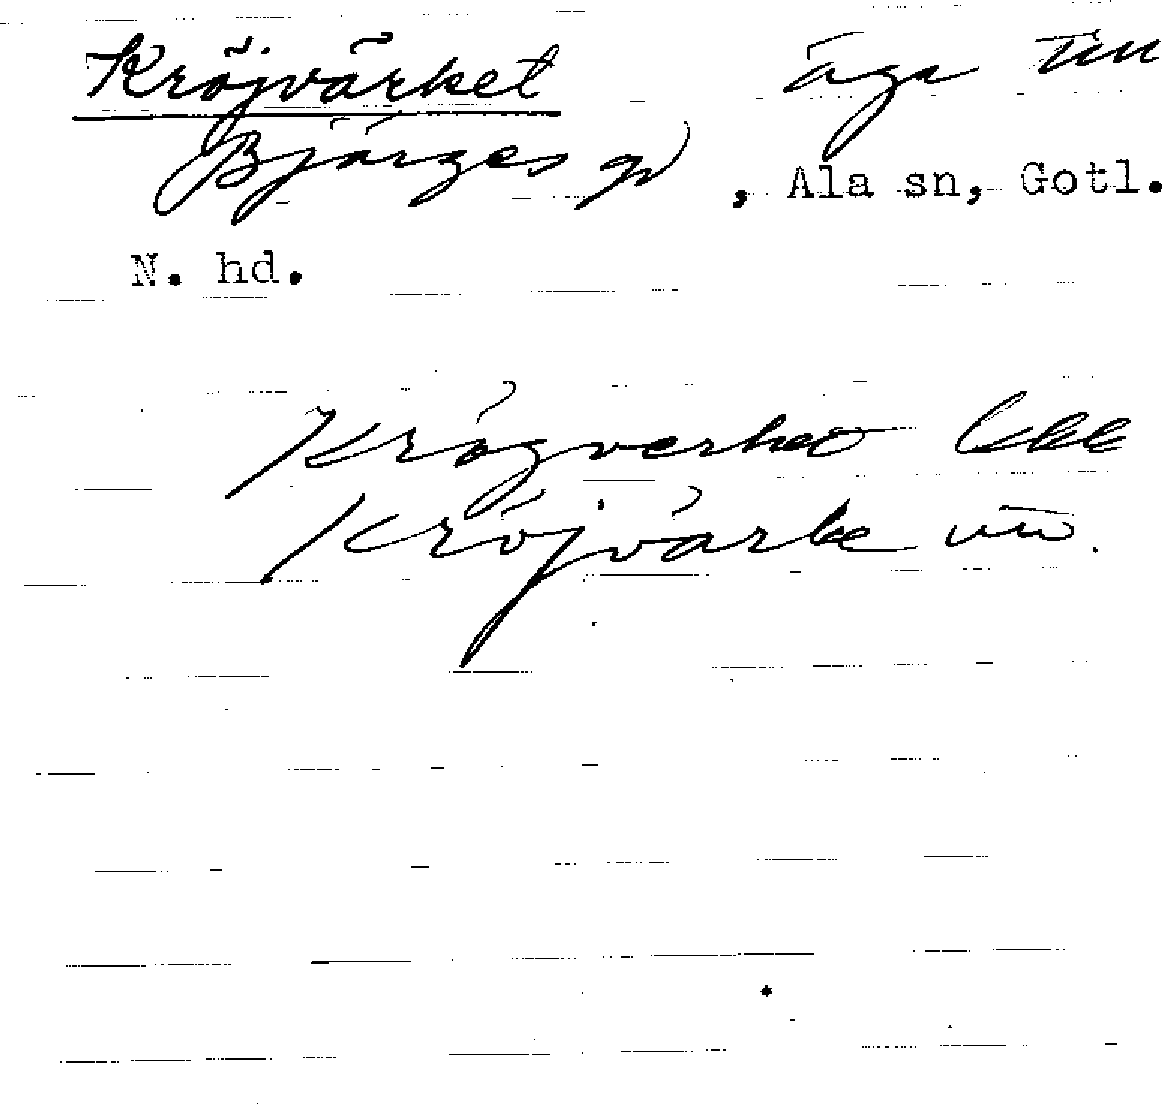 Kröjvärket äga till
Bjärges gd, Ala sn, Gotl.
N. hd.
Krögverket
Kröjvärke